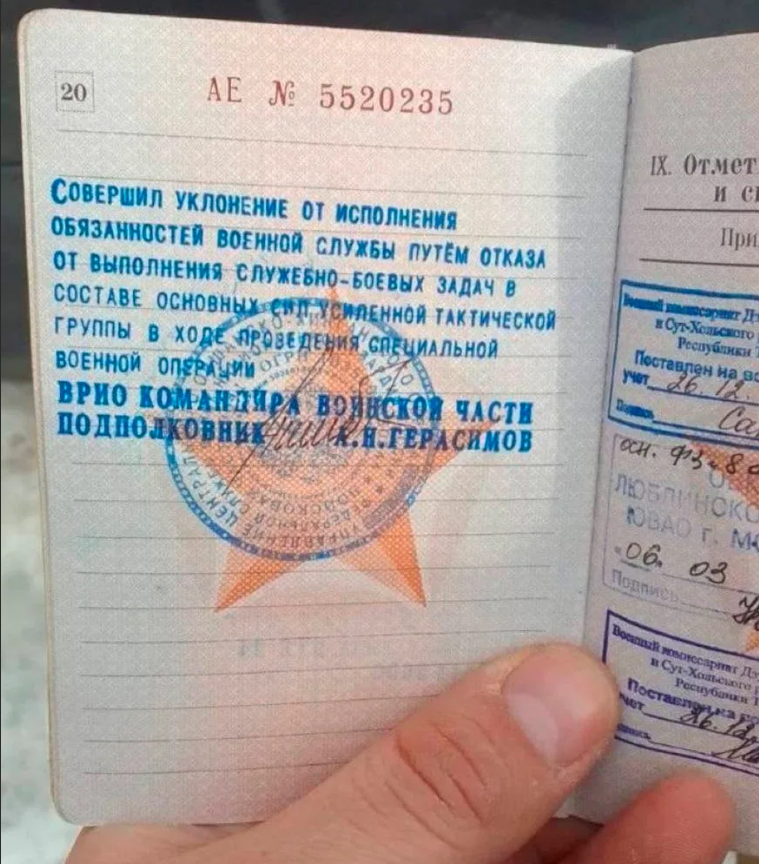 20
АЕ № 5520235
СОВЕРШИЛ УКЛОНЕНИЕ ОТ ИСПОЛНЕНИЯ
ОБЯЗАННОСТЕЙ ВОЕННОЙ СЛУЖБЫ ПУТЁМ ОТКАЗА
ОТ ВЫПОЛНЕНИЯ СЛУЖЕБНО-БОЕВЫХ ЗАДАЧ В
СОСТАВЕ ОСНОВНЫХ СИЛ УСИЛЕННОЙ ТАКТИЧЕСКОЙ
ГРУППЫ В ХОДЕ ПРОВЕДЕНИЯ СПЕЦИАЛЬНОЙ
ВОЕННОЙ ОПЕРАЦИИ
ВРИО КОМАНДИРА ВОИНСКОЙ ЧАСТИ
ПОДПОЛКОВНИК А.Н.ГЕРАСИМОВ
IX. Отмет
и
При
Военный комиссариат
в Сут-Хольского
Республики
Поставлен на
учет 26.12.
Подпись
осн. ФЗ
ЛЮБЛИНСКО
ЮВАО г. М
"06. 03
Подпись
Военный комиссариат
в Сут-Хольского
Республики
Поставлен на
учет 26.12.